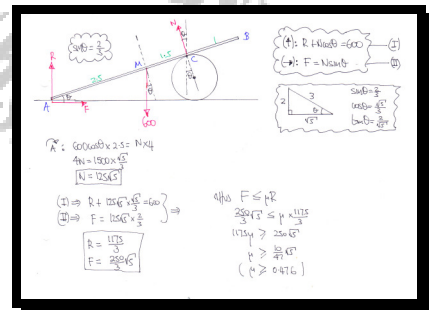 sinθ = 2/3
N
1
B
R
1.5
C
M
2.5
θ
θ
A
F
600
(↑): R + Ncosθ = 600 —— (I)
(→): F = Nsinθ —— (II)
2
3
θ
√5
sinθ = 2/3
cosθ = √5/3
tanθ = 2/√5
A: 600cosθ × 2.5 = N × 4
4N = 1500 × √5/3
N = 125√5
(I) ⇒ R + 125√5 × √5/3 = 600
(II) ⇒ F = 125√5 × 2/3
⇒
R = 1175/3
F = 250/3 √5
Thus F ≤ μR
250/3 √5 ≤ μ × 1175/3
1175μ ≥ 250√5
μ ≥ 10/47 √5
(μ ≥ 0.476)